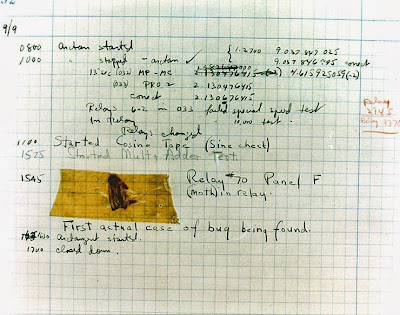 9/9
0800 antan started
1000 " stopped - antan ✓ { 1.2700 9.037 847 025
9.037 846 995 correct
13"uc (032) MP-MC 2.130476415 4.615925059(-2)
(033) PRO 2 2.130476415
correct 2.130676415
Relays 6-2 in 033 failed special speed test
in relay 10,000 test.
Relays changed
Relay
2145
Relay 3370
1100 Started Cosine Tape (Sine check)
1525 Started Multy Adder Test.
1545 Relay #70 Panel F
(moth) in relay.
First actual case of bug being found.
1630 antangent started.
1700 closed down.